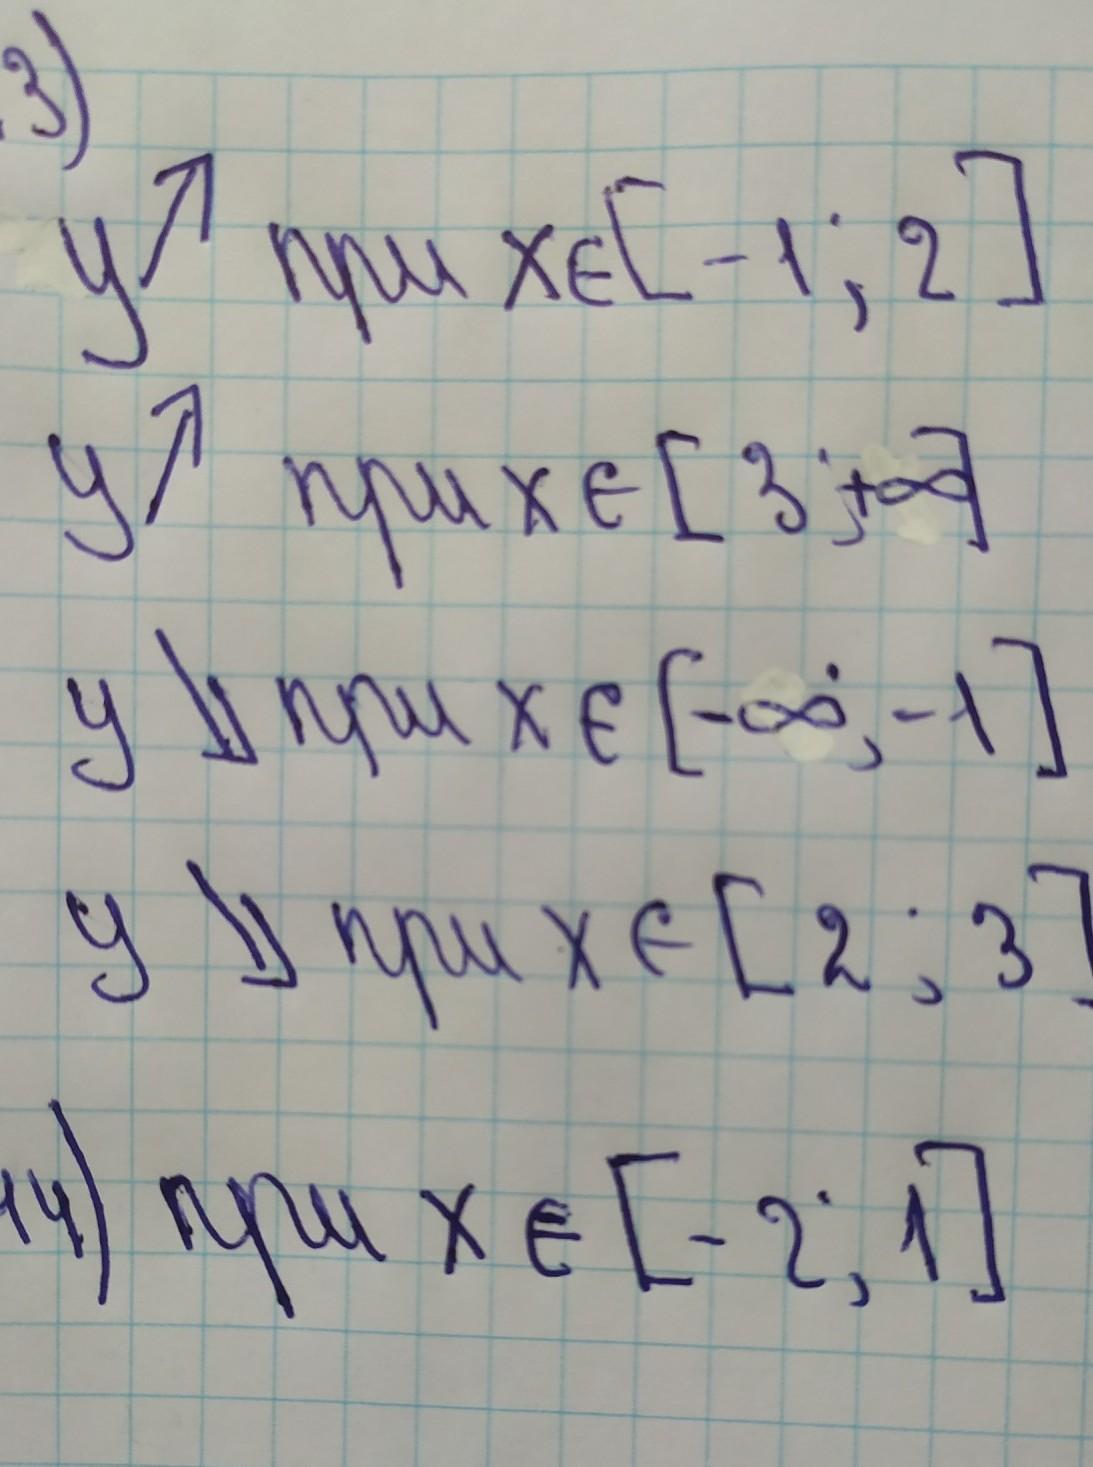 .3)
y↗ при x∈[-1; 2]
y↗ при x∈[3; +∞]
y↘ при x∈[-∞; -1]
y↘ при x∈[2; 3]
14) при x∈[-2; 1]